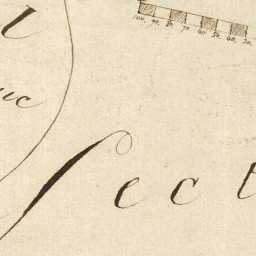 l
uc
100. 90. 80. 70. 60. 50. 40. 30.
ſect